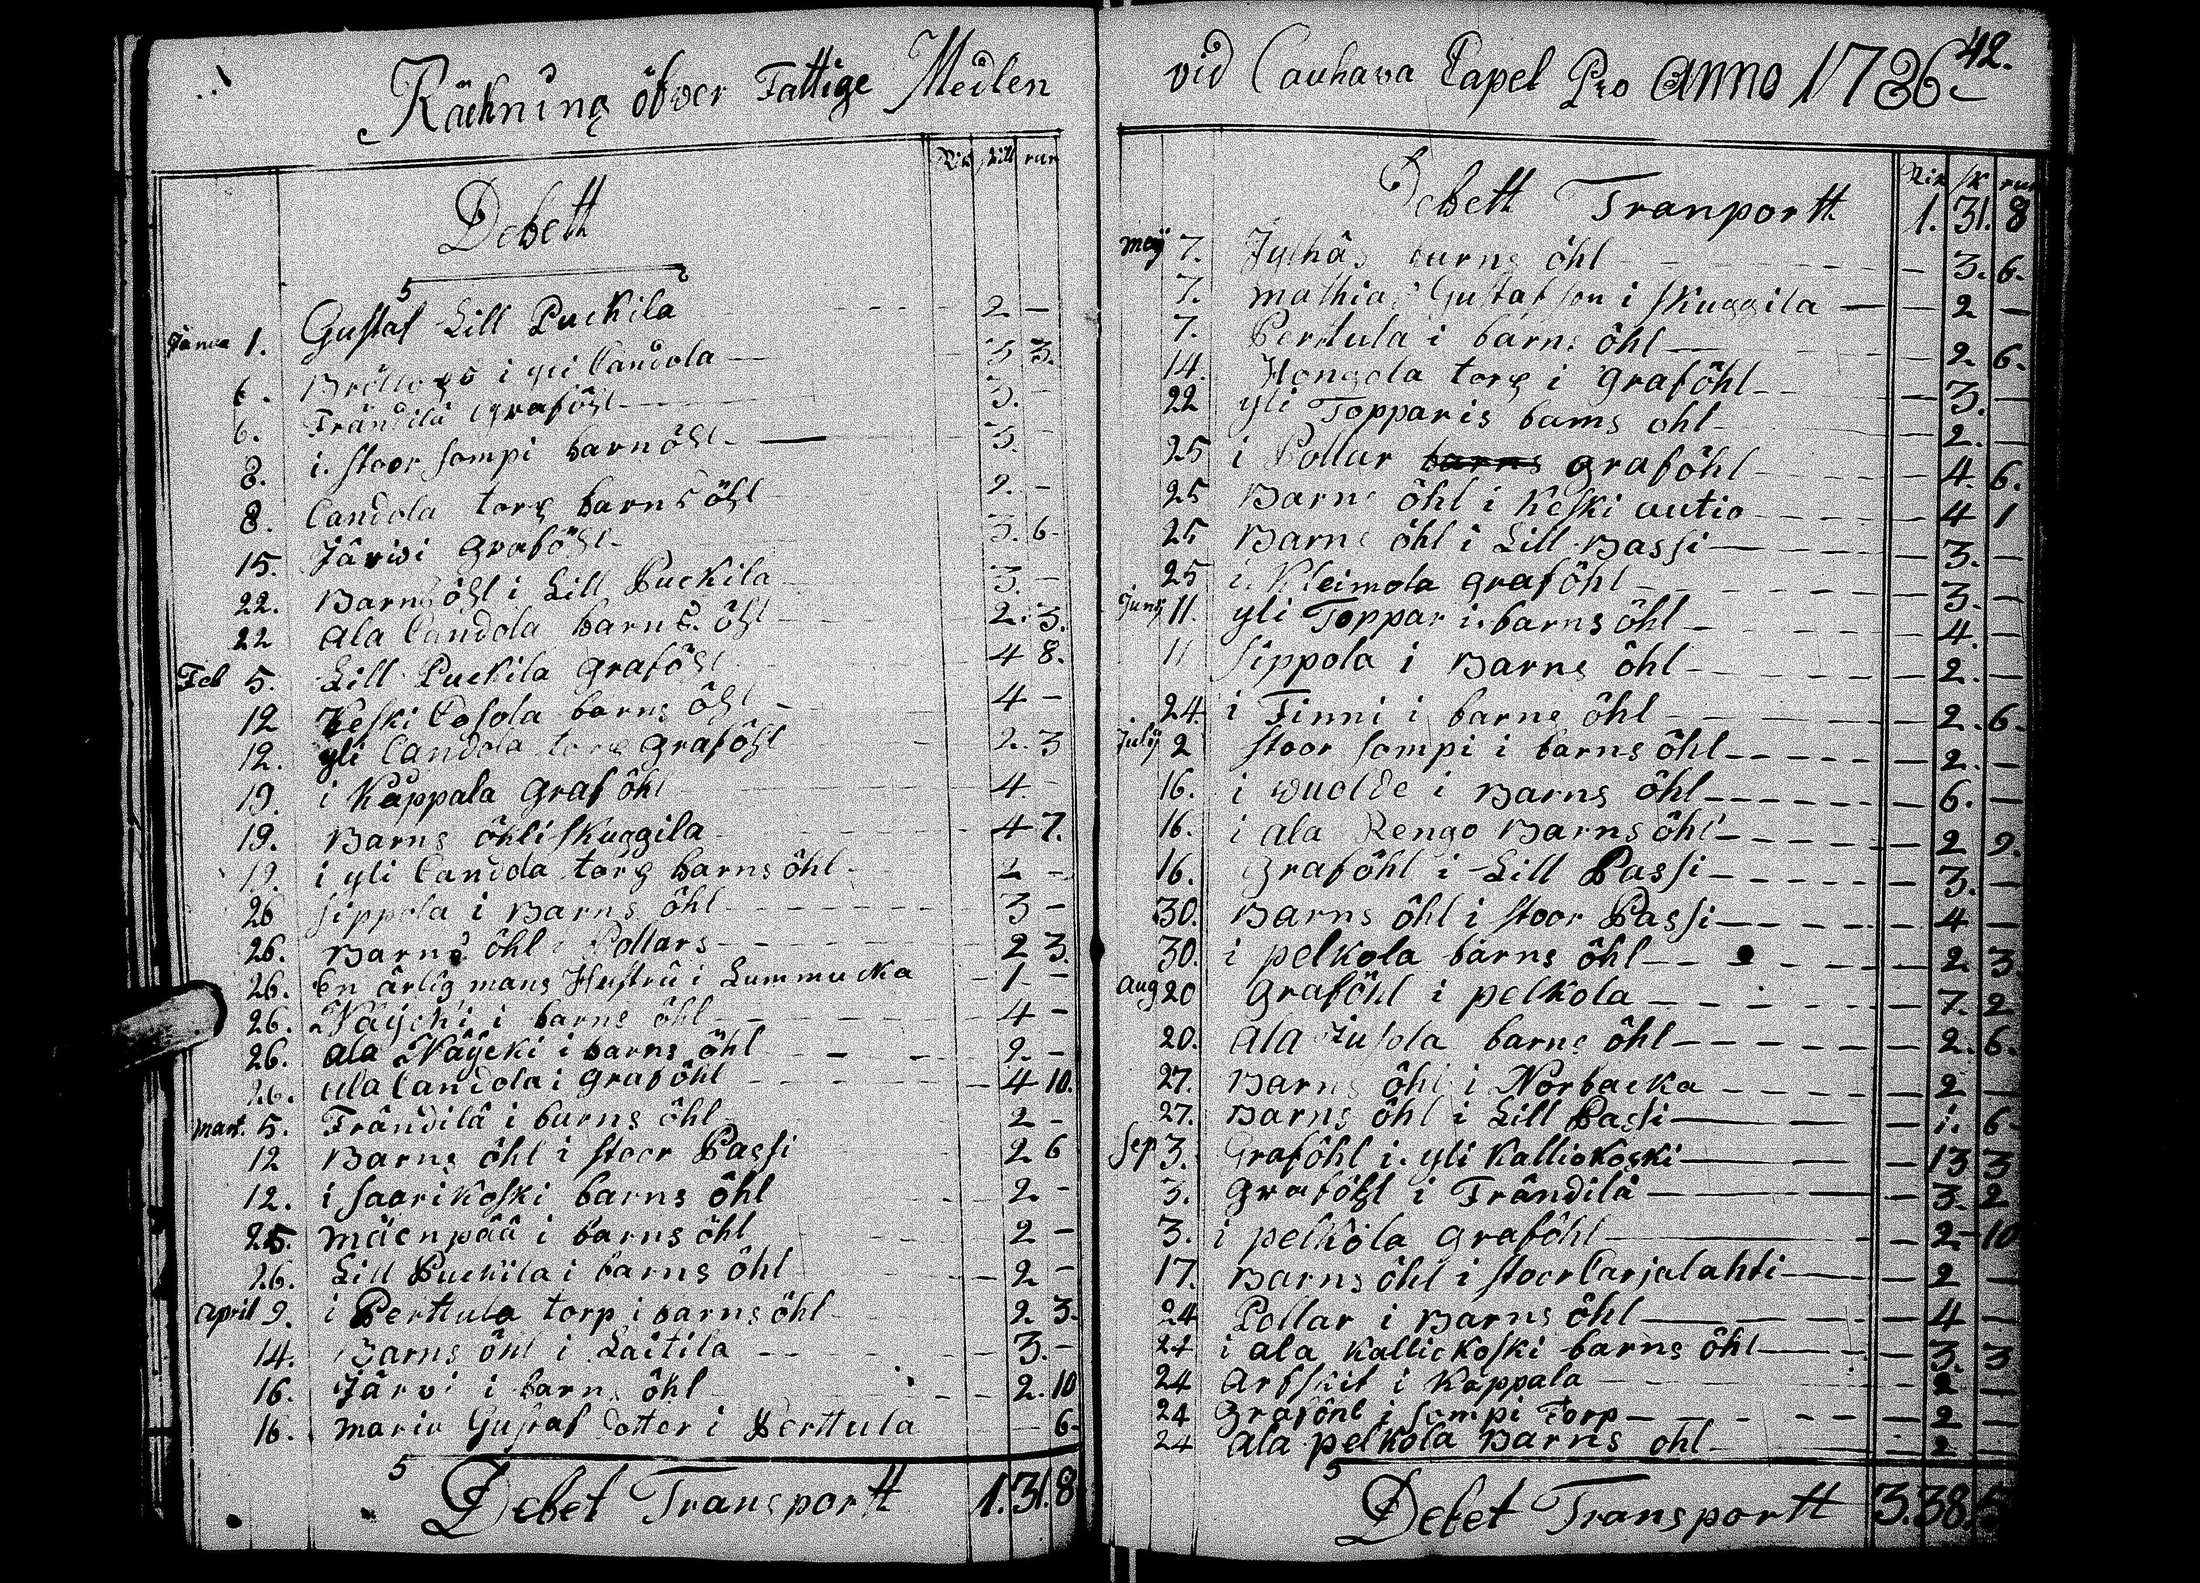 Räckning öfver Fattige Medlen
Rik skill run
Debett
Janua 1. Gustaf Lill Puckila 2 —
6. i yli Candola — 3 3.
6. Frändilä Graföhl — 3. —
8. i stoor sompi barnöhl — 3. —
8. Candola torp barns öhl 2. —
15. Järwi Graföhl — 3. 6
22. Barns öhl i Lill Puckila 3. —
22 ala Candola barns öhl 2. 3.
Feb 5. Lill Puckila Graföhl 4 8.
12 Keski Cosola barns öhl 4 —
12. yli Candola torp Graföhl 2. 3
19. i Kåppala Graföhl 4. —
19. Barns öhl i skuggila 4 7.
19. i yli Candola torp barns öhl 2 —
26 sippola i Barns öhl 3 —
26. Barns öhl i Pollars 2 3.
26. En ärlig mans Hustru i Lummucka 1 —
26. Näycki i barns öhl 4 —
26. ala Näycki i barns öhl 2. —
26. ala Candola i Graföhl 4 10.
Mart. 5. Frändilä i barns öhl 2 —
12 Barns öhl i stoor Passi 2 6
12. i saarikoski barns öhl 2. —
25. mäenpää i barns öhl 2 —
26. Lill Puckila i barns öhl 2 —
April 9. i Perttula torp i barns öhl 2. 3.
14. Barns öhl i Laitila 3. —
16. Järvi i barns öhl 2. 10
16. maria Gustaf dotter i Perttula — 6
Debet Transportt 1. 31. 8
42.
vid Cauhava Capel Pro Anno 1786
Rik sk run
Debett Tranportt 1. 31. 8
Meij 7. Jylhäs barns öhl 3. 6.
7. Mathias Gustafson i skuggila 2 —
7. Perttula i barns öhl 2. 6.
14. Hongola torp i Graföhl 3. —
22 yli Topparis barns öhl 2. —
25 i Pollar barns graföhl 4. 6.
25 Barns öhl i Keski autio 4 1
25 Barns öhl i Lill Passi 3. —
25 i Kleimola graföhl 3. —
Juny 11. yli Toppar i barns öhl 4. —
11 sippola i Barns öhl 2. —
24. i Finni i barns öhl 2. 6.
Julij 2 stoor sompi i barns öhl 2. —
16. i wuolde i Barns öhl 6. —
16. i ala Rengo Barns öhl 2 9.
16. Graföhl i Lill Passi 3. —
30. Barns öhl i stoor Passi 4 —
30. i pelkola barns öhl 2. 3
Aug 20 Graföhl i pelkola 7. 2
20. ala Jusola barns öhl 2. 6.
27. Barns öhl i Norbacka 2 —
27. Barns öhl i Lill Passi 1. 6
Sep 3. Graföhl i yli Kalliokoski 13 3
3. Graföhl i Frändilä 3. 2
3. i pelkola Graföhl 2 10
17. Barns öhl i stoor Carjalahti 2 —
24 Pollar i Barns öhl 4 —
24 i ala Kalliokoski barns öhl 3. 3
24 Arfskit i Kåppala 2 —
24 Graföhl i sompi Torp 2 —
24 Ala pelkola Barns öhl 2 —
Debet Transportt 3. 38. 5